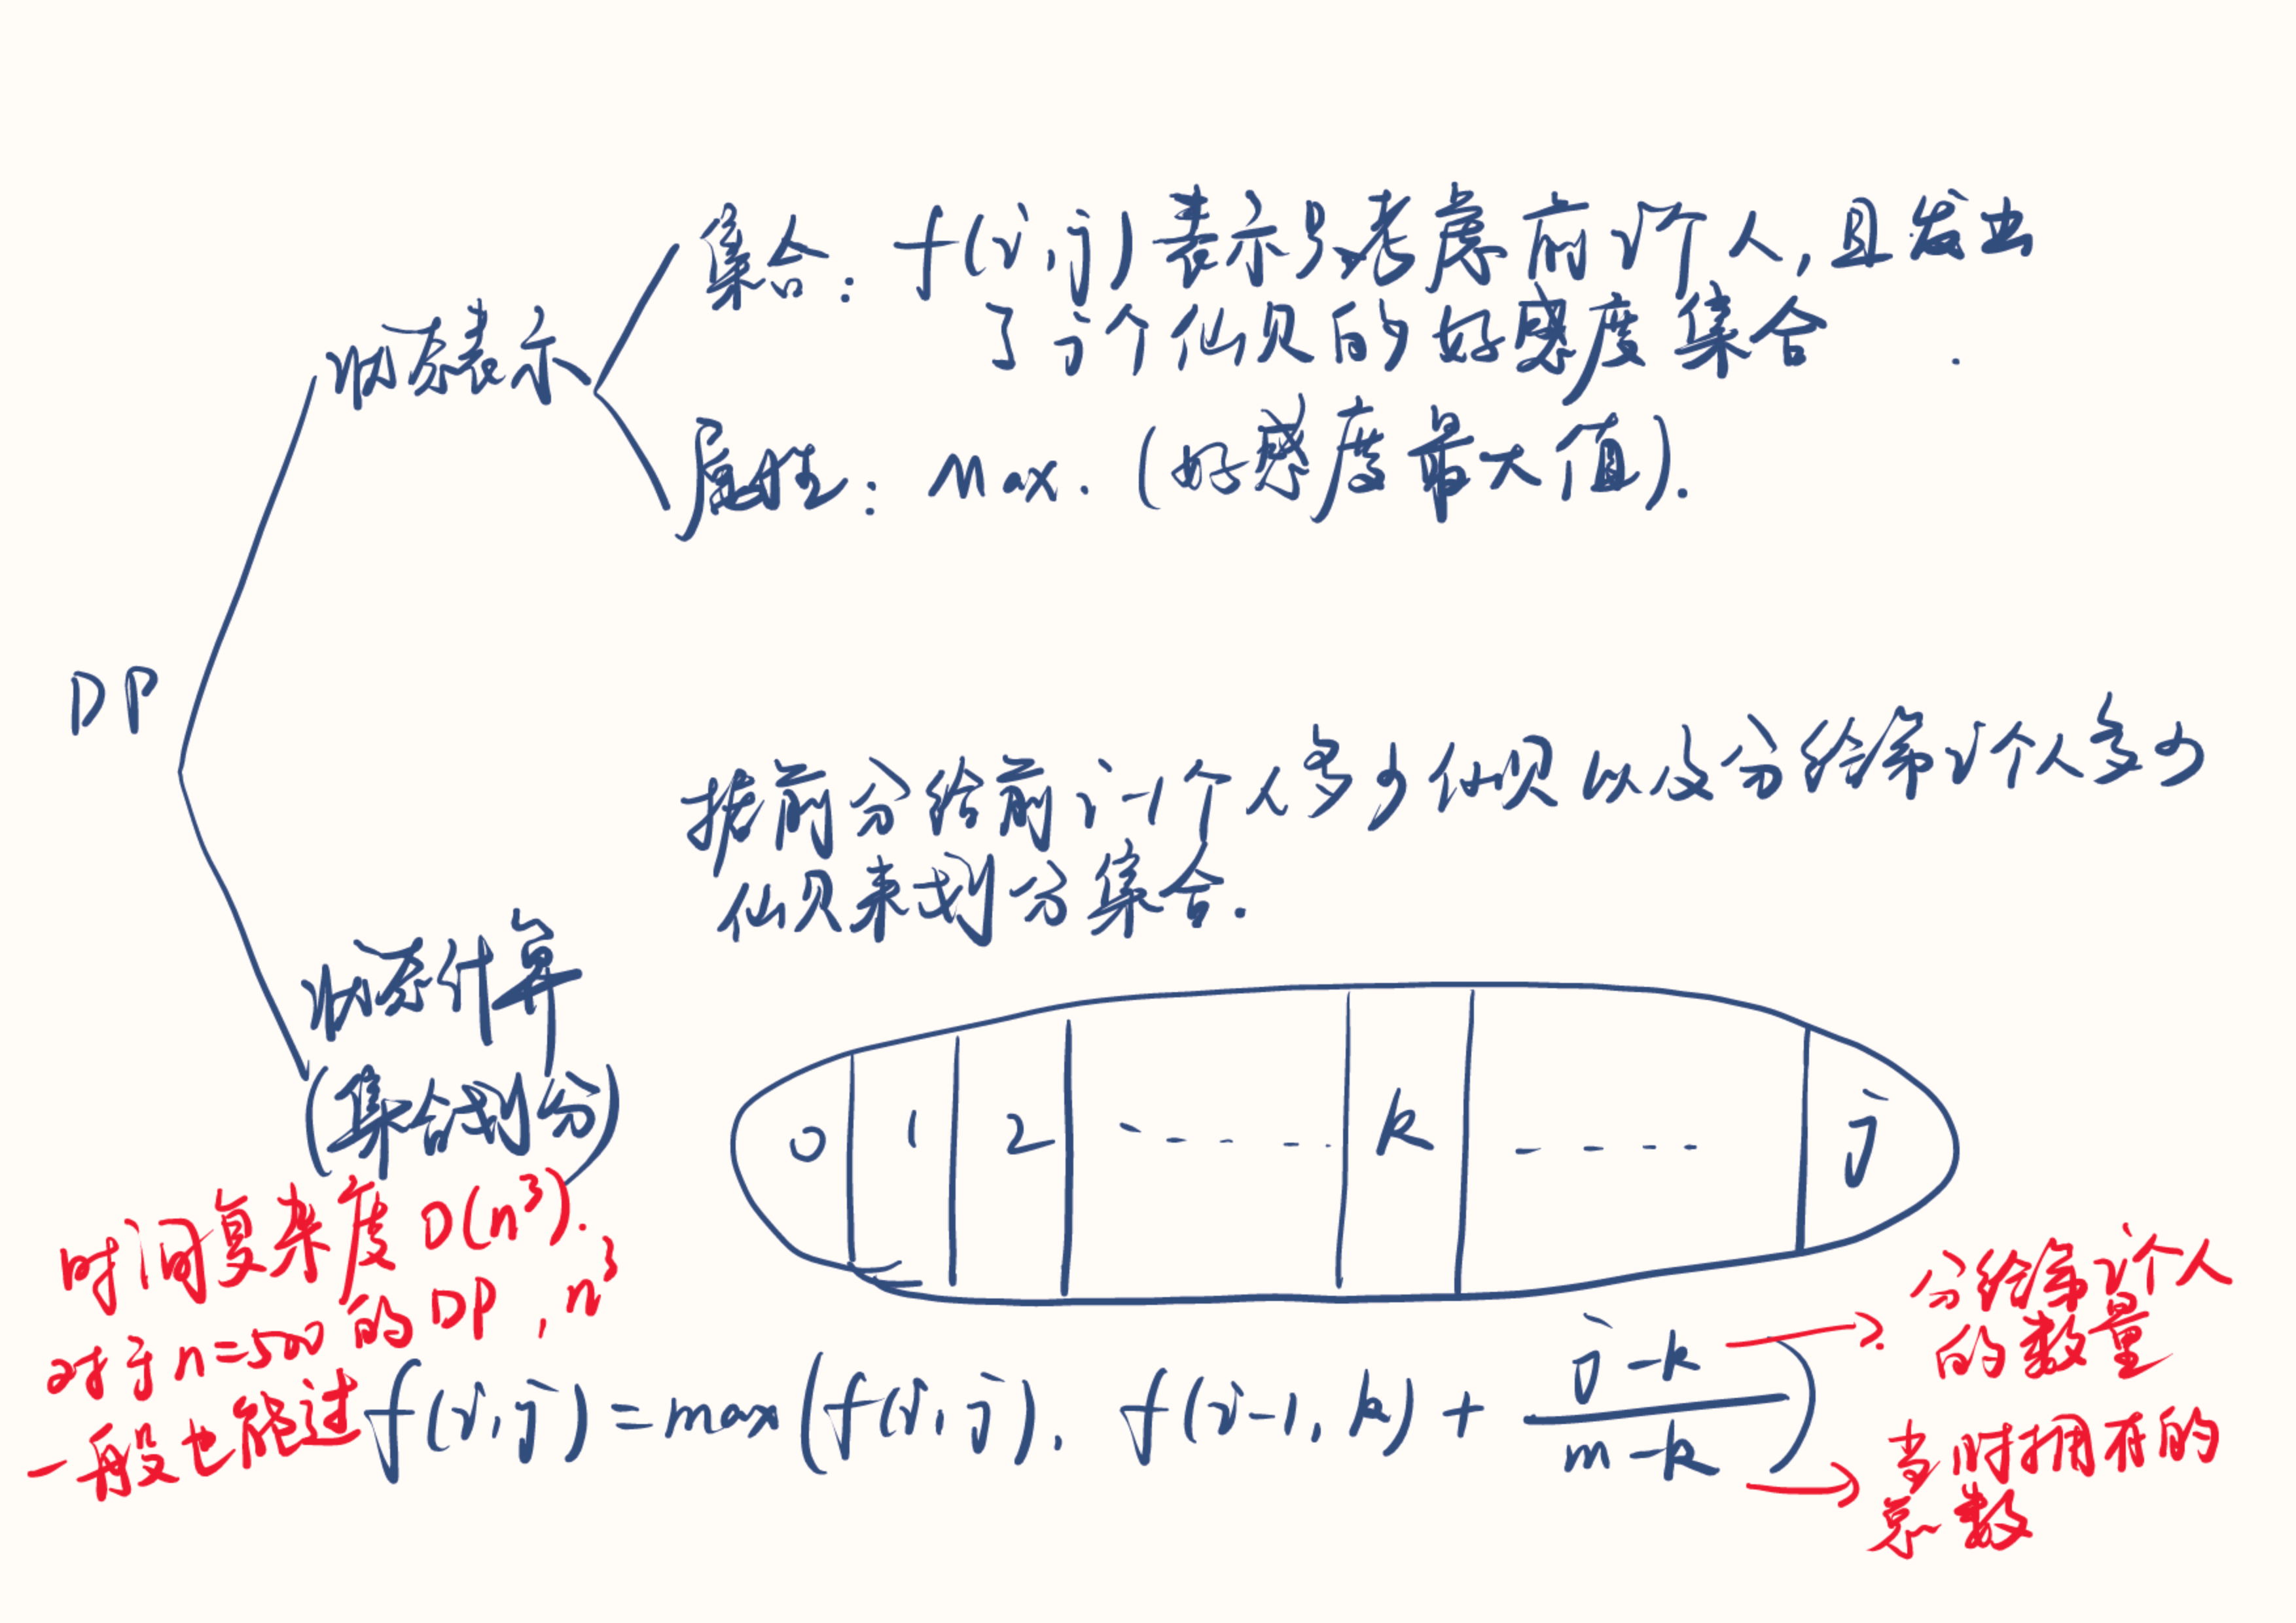 DP
状态表示
集合：f(i,j)表示只考虑前i个人,且发出
了j个仙贝的好感度集合.
属性：Max.(好感度最大值).
状态计算
(集合划分)
据前分给前i-1个人多少仙贝以及分给第i个人多少
仙贝来划分集合.
0 1 2 ...... k ...... j
时间复杂度O(n³).
对于n=500的DP,n³
一般也能过
f(i,j)=max(f(i,j), f(i-1,k)+\frac{j-k}{m-k})
分给第i个人
的数量
当时拥有的
总数